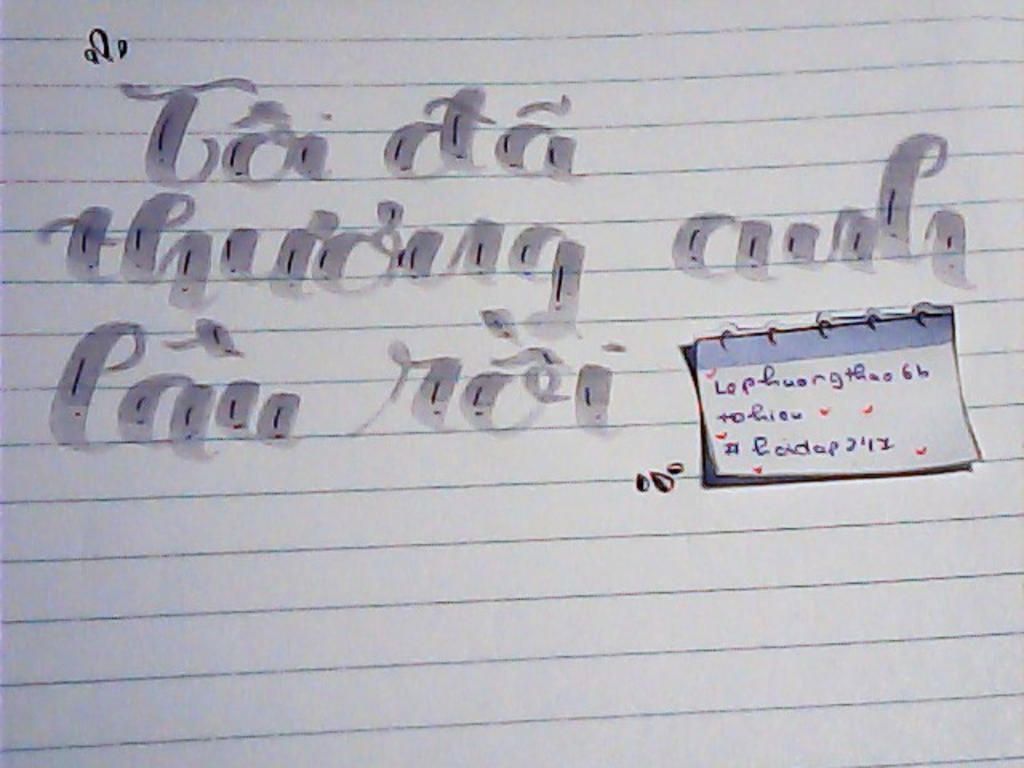 Tôi đã
thương anh
lâu rồi
Lephuongthao6b
# hoidap247